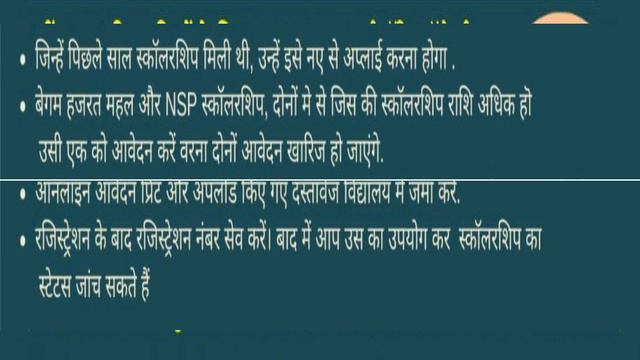 • जिन्हें पिछले साल स्कॉलरशिप मिली थी, उन्हें इसे नए से अप्लाई करना होगा .
• बेगम हजरत महल और NSP स्कॉलरशिप, दोनों मे से जिस की स्कॉलरशिप राशि अधिक हॊ
उसी एक को आवेदन करें वरना दोनों आवेदन खारिज हो जाएंगे.
• आनलाइन आवेदन प्रिंट और अपलोड किए गए दस्तावेज विद्यालय में जमा करें.
• रजिस्ट्रेशन के बाद रजिस्ट्रेशन नंबर सेव करें। बाद में आप उस का उपयोग कर स्कॉलरशिप का
स्टेटस जांच सकते हैं